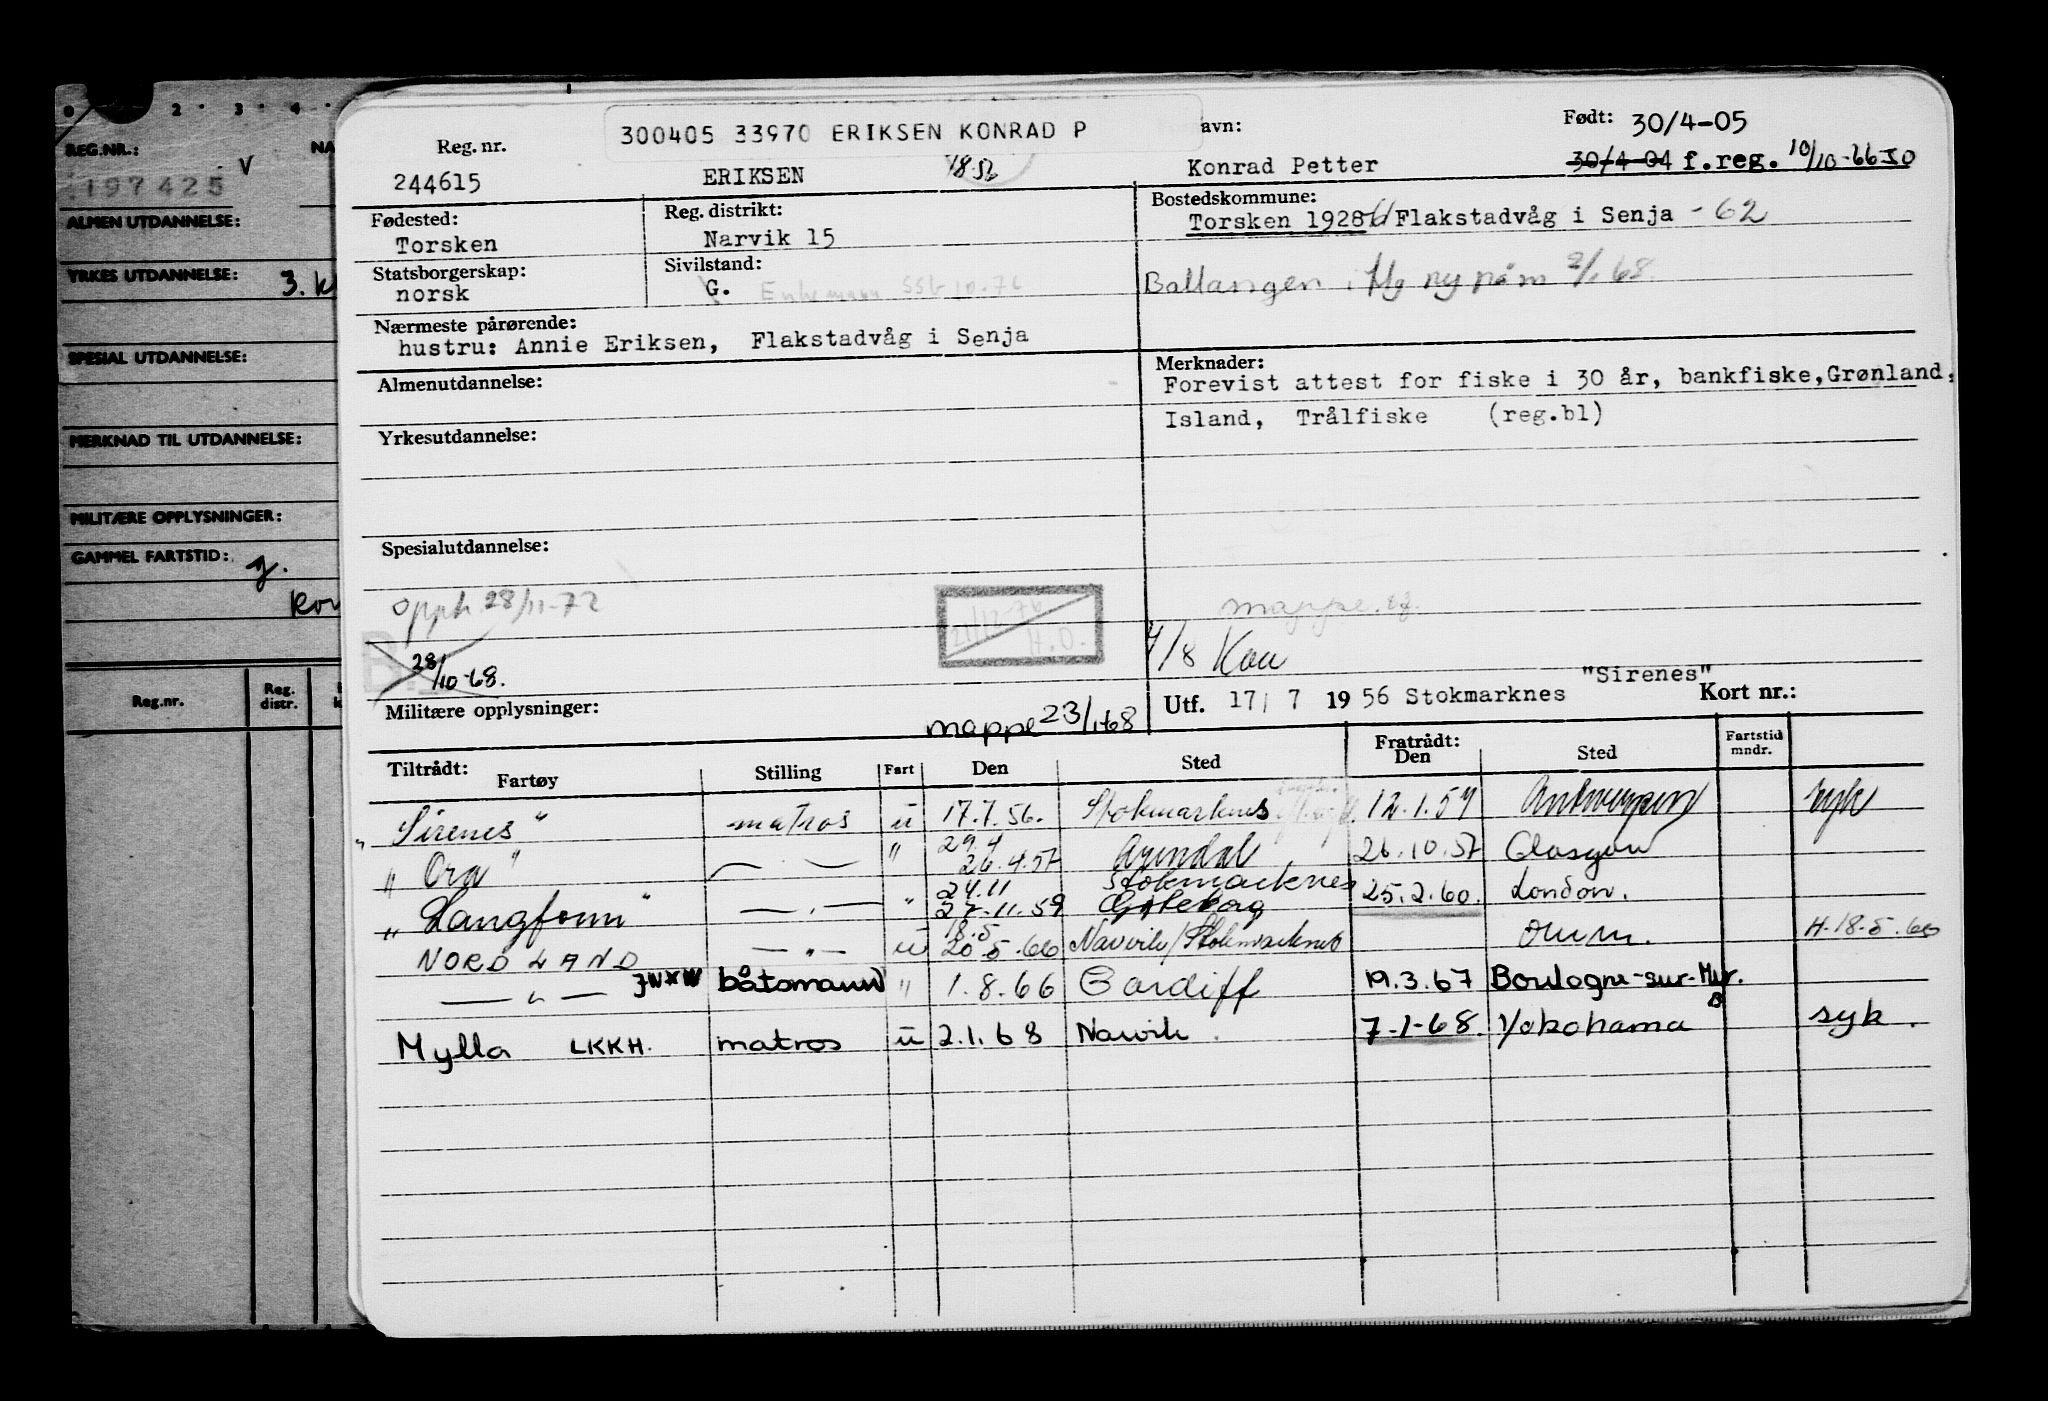 2 · 3 · 4 ·
REG.NR.: NA
V
197425
ALMEN UTDANNELSE:
YRKES UTDANNELSE: 3. k
SPESIAL UTDANNELSE:
MERKNAD TIL UTDANNELSE:
MILITÆRE OPPLYSNINGER:
GAMMEL FARTSTID: g.
Reg.nr. Reg. distr.
300405 33970 ERIKSEN KONRAD P
avn: Født: 30/4-05
Reg. nr.
244615 ERIKSEN Konrad Petter 30/4-04 f.reg. 10/10-66
Fødested: Reg. distrikt: Bostedskommune:
Torsken Narvik 15 Torsken 1928 Flakstadvåg i Senja - 62
Statsborgerskap: Sivilstand:
norsk G.
Ballangen ny påm 2/1 68.
Nærmeste pårørende:
hustru: Annie Eriksen, Flakstadvåg i Senja
Almenutdannelse: Merknader:
Forevist attest for fiske i 30 år, bankfiske, Grønland,
Island, Trålfiske (reg.bl)
Yrkesutdannelse:
Spesialutdannelse:
opph 28/11-72
21/12-76 H.O.
mappe
28/10-68.
"Sirenes"
Utf. 17/ 7 1956 Stokmarknes Kort nr.:
Militære opplysninger: mappe 23/1-68
Tiltrådt: Fartøy Stilling Fart Den Sted Fratrådt: Den Sted Fartstid mndr.
"Sirenes" matros u 17.7.56. Stokmarknes 12.1.57 Antwerpen syk
29.4
"Ora" — . — " 26.4.57 Arendal 26.10.57 Glasgow
24.11 Stokmarknes
"Langfonn" — . — " 27.11.59 Gøteborg 25.2.60. London.
18.5
NORDLAND — " — u 20.5.66 Narvik/Stokmarknes H. 18.5.66
— " — JWXW båtsmann " 1.8.66 Cardiff 19.3.67 Boulogne-sur-Mer.
Mylla LKKH. matros u 2.1.68 Narvik. 7-1-68. Yokohama syk.